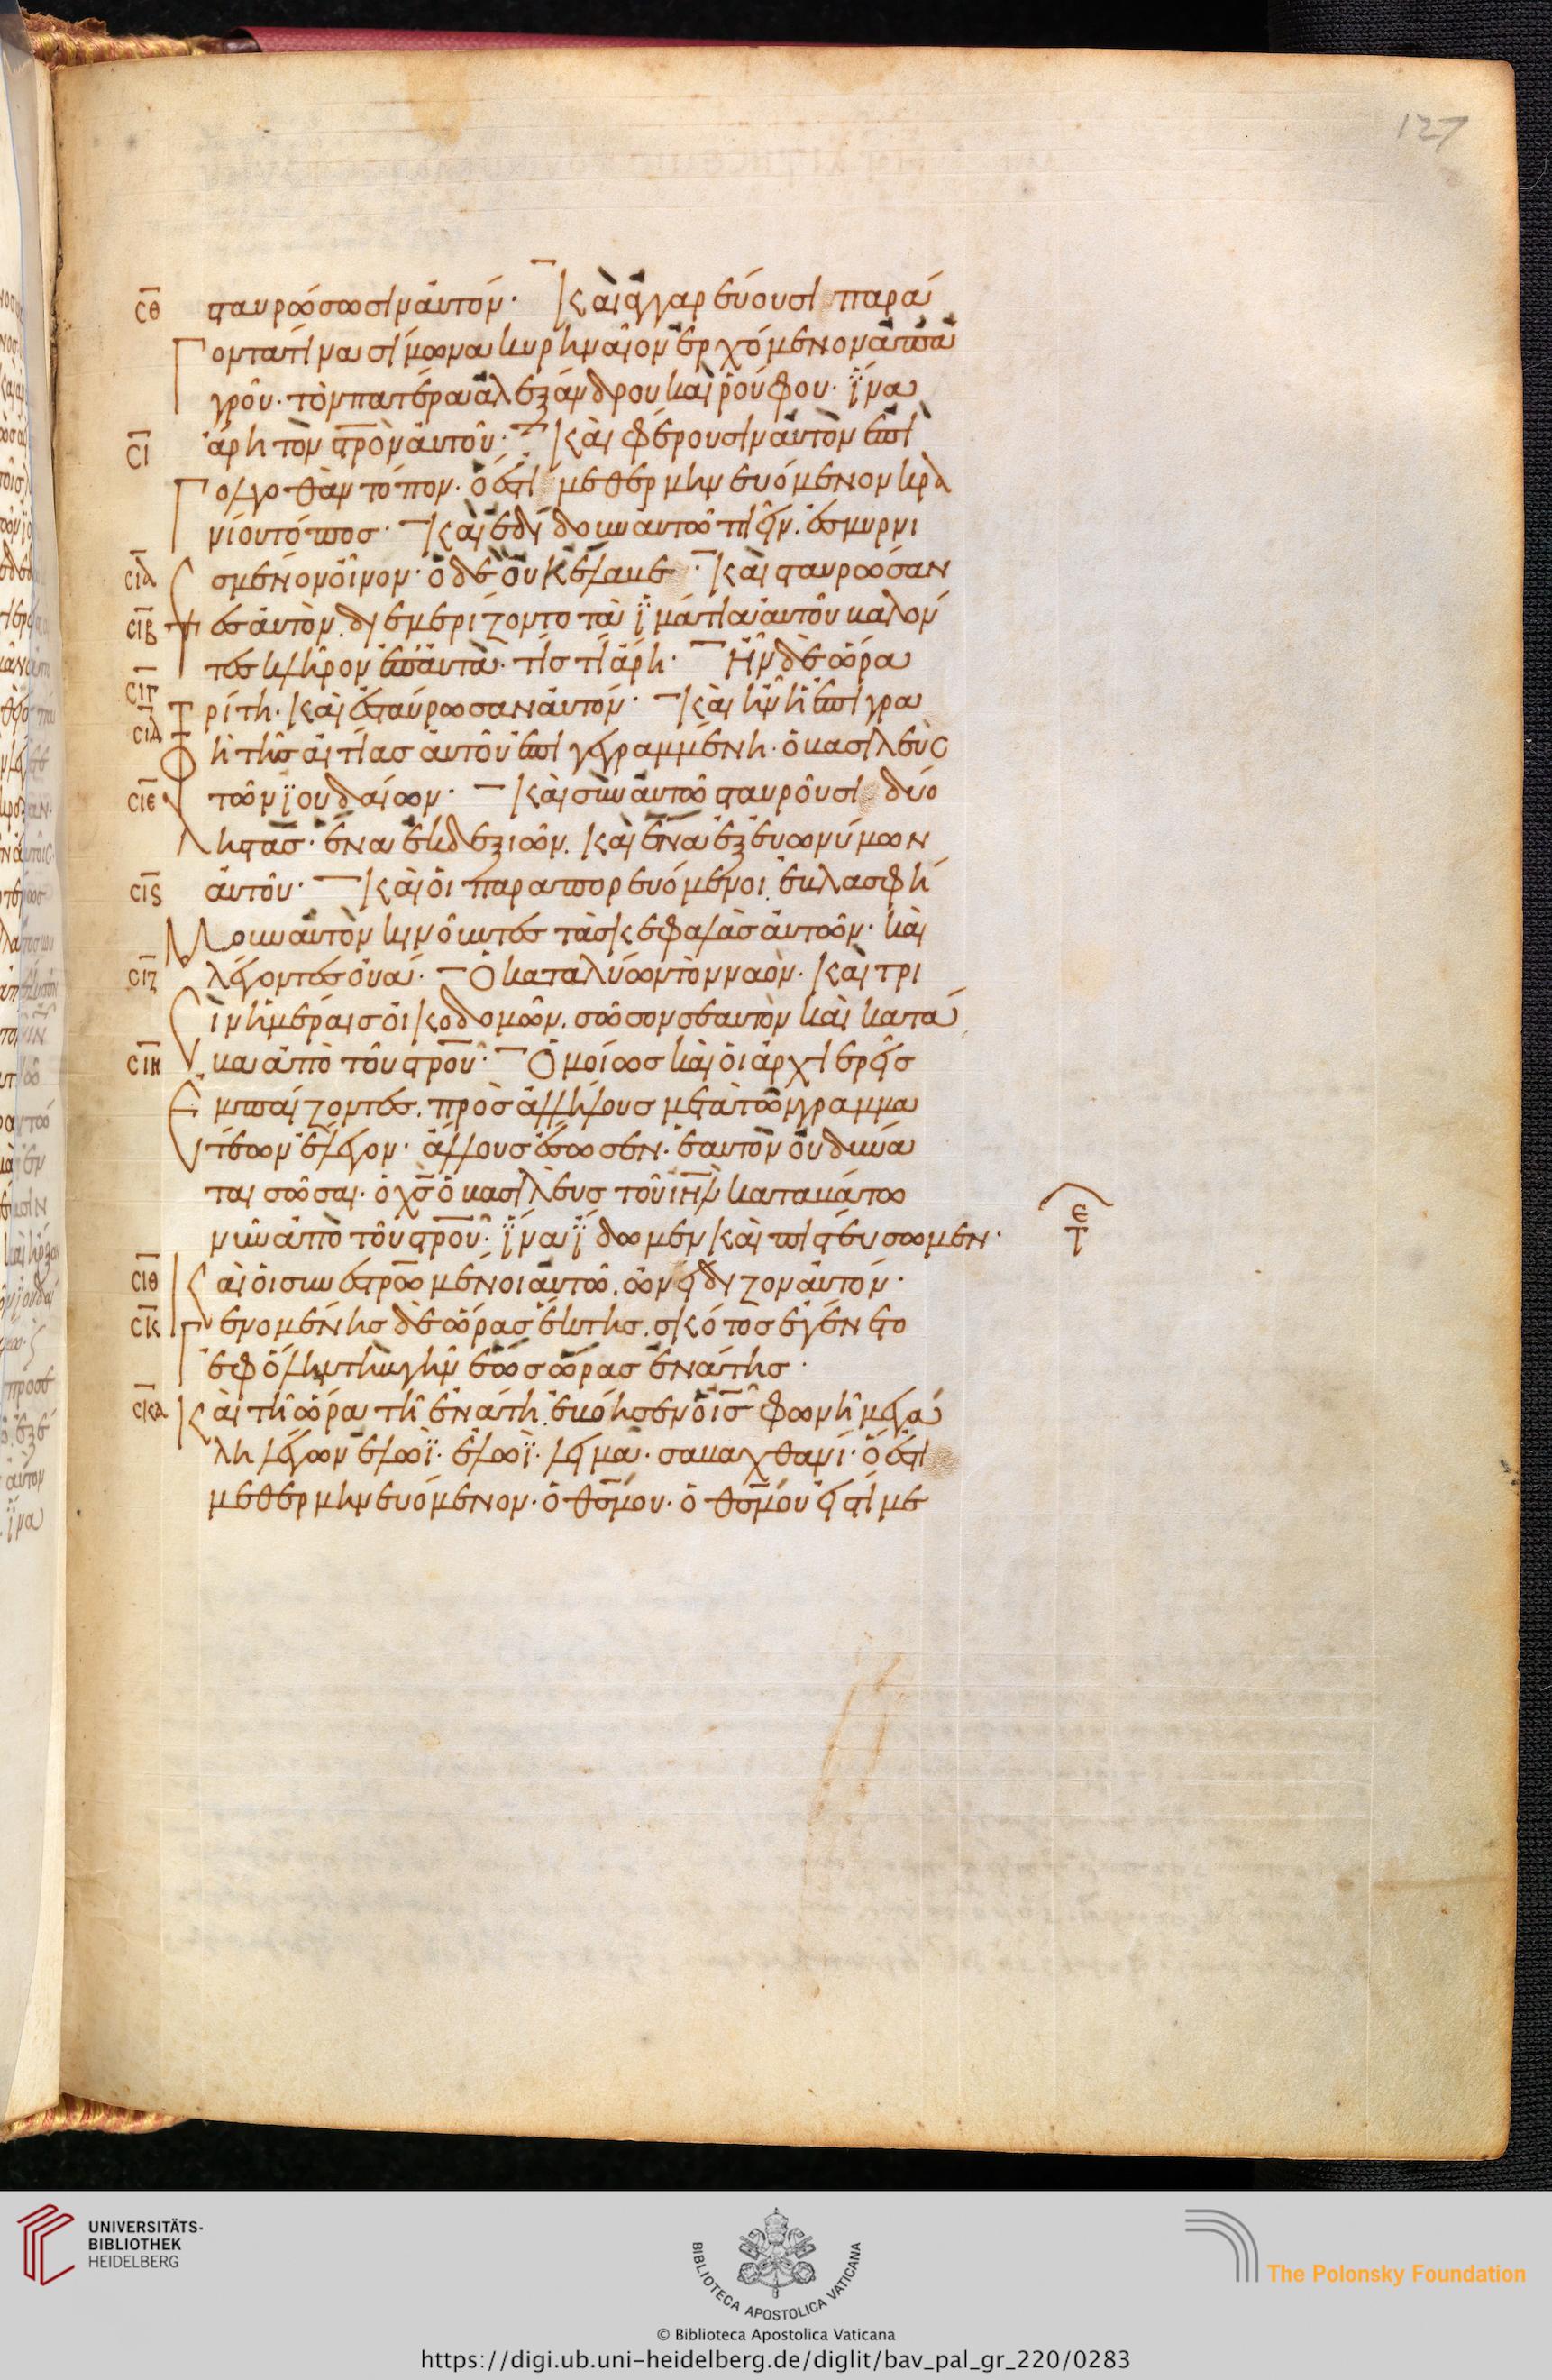 127
σ̅θ̅ σταυρώσωσιν αὐτόν· Καὶ ἀγγαρεύουσι παρά
γοντα τινα σίμωνα κυρηναῖον ἐρχόμενον ἀπ ἀ
γροῦ· τὸν πατέρα ἀλεξάνδρου καὶ ῥούφου· ἵνα
σ̅ι̅ ἄρη τὸν σ̅ρ̅ο̅ν αὐτοῦ· Καὶ φέρουσιν αὐτὸν ἐπὶ
γολγοθὰν τόπον· ὅ ἐστι μεθερμηνευόμενον κρα
νίου τόπος· Καὶ ἐδίδουν αὐτῶ πιεῖν ἐσμυρνι
σ̅ι̅α̅ σμένον οἶνον· ὁ δὲ οὐκ ἔλαβε· Καὶ σταυρώσαν
σ̅ι̅β̅ τες αὐτὸν. διεμερίζοντο τὰ ἱμάτια αὐτοῦ βαλόν
τες κλῆρον ἐπ αὐτὰ· τίς τί ἄρη· Ἦν δὲ ὥρα
σ̅ι̅γ̅ σ̅ι̅δ̅ τρίτη· καὶ ἐσταύρωσαν αὐτόν· Καὶ ἦν ἡ ἐπιγρα
φὴ τῆς αἰτίας αὐτοῦ ἐπιγεγραμμένη· ὁ βασιλεὺς
σ̅ι̅ε̅ τῶν ϊουδαίων· Καὶ σὺν αὐτῶ σταυροῦσι δύο
ληστὰς· ἕνα ἐκ δεξιῶν. καὶ ἕνα ἐξ εὐωνύμων
σ̅ι̅ς̅ αὐτοῦ· Καὶ οἱ παραπορευόμενοι ἐβλασφή
μουν αὐτὸν κινοῦντες τὰς κεφαλὰς αὐτῶν· καὶ
σ̅ι̅ζ̅ λέγοντες οὐαί· Ὁ καταλύων τὸν ναὸν· καὶ τρι
σὶν ἡμέραις οἰκοδομῶν. σῶσον σεαυτὸν καὶ κατά
σ̅ι̅η̅ βα ἀπὸ τοῦ σ̅ρ̅ο̅υ̅· Ὁμοίως καὶ οἱ ἀρχιερεῖς
ἐμπαίζοντες. πρὸς ἀλλήλους μετὰ τῶν γραμμα
τέων ἔλεγον· ἄλλους ἔσωσεν· ἑαυτὸν οὐ δύνα
ται σῶσαι· ὁ χ̅ς̅ ὁ βασιλεὺς τοῦ ι̅η̅λ̅ καταβάτω
νῦν ἀπὸ τοῦ σ̅ρ̅ο̅υ̅· ἵνα ἴδωμεν καὶ πιστεύσωμεν·
ε
τ
σ̅ι̅θ̅ Καὶ οἱ συνεστρω̅μένοι αὐτῶ. ὠνείδιζον αὐτόν·
σ̅κ̅ Γενομένης δὲ ὥρας ἕκτης. σκότος ἐγένετο
ἐφ ὅλην τὴν γῆν ἕως ὥρας ἐνάτης·
σ̅κ̅α̅ Καὶ τῆ ὥρα τῆ ἐνάτη. ἐβόησεν ὁ ι̅ς̅ φωνῆ μεγά
λη λέγων ἐλωῒ· ἐλωῒ· λειμὰ· σαβαχθανί· ὅ ἐστι
μεθερμηνευόμενον· ὁ θ̅ς̅ μου· ὁ θ̅ς̅ μου εἰς τί με
UNIVERSITÄTS-
BIBLIOTHEK
HEIDELBERG
BIBLIOTECA APOSTOLICA VATICANA
The Polonsky Foundation
© Biblioteca Apostolica Vaticana
https://digi.ub.uni-heidelberg.de/diglit/bav_pal_gr_220/0283